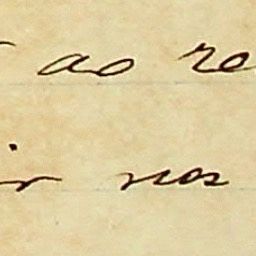 ao re
ir nos